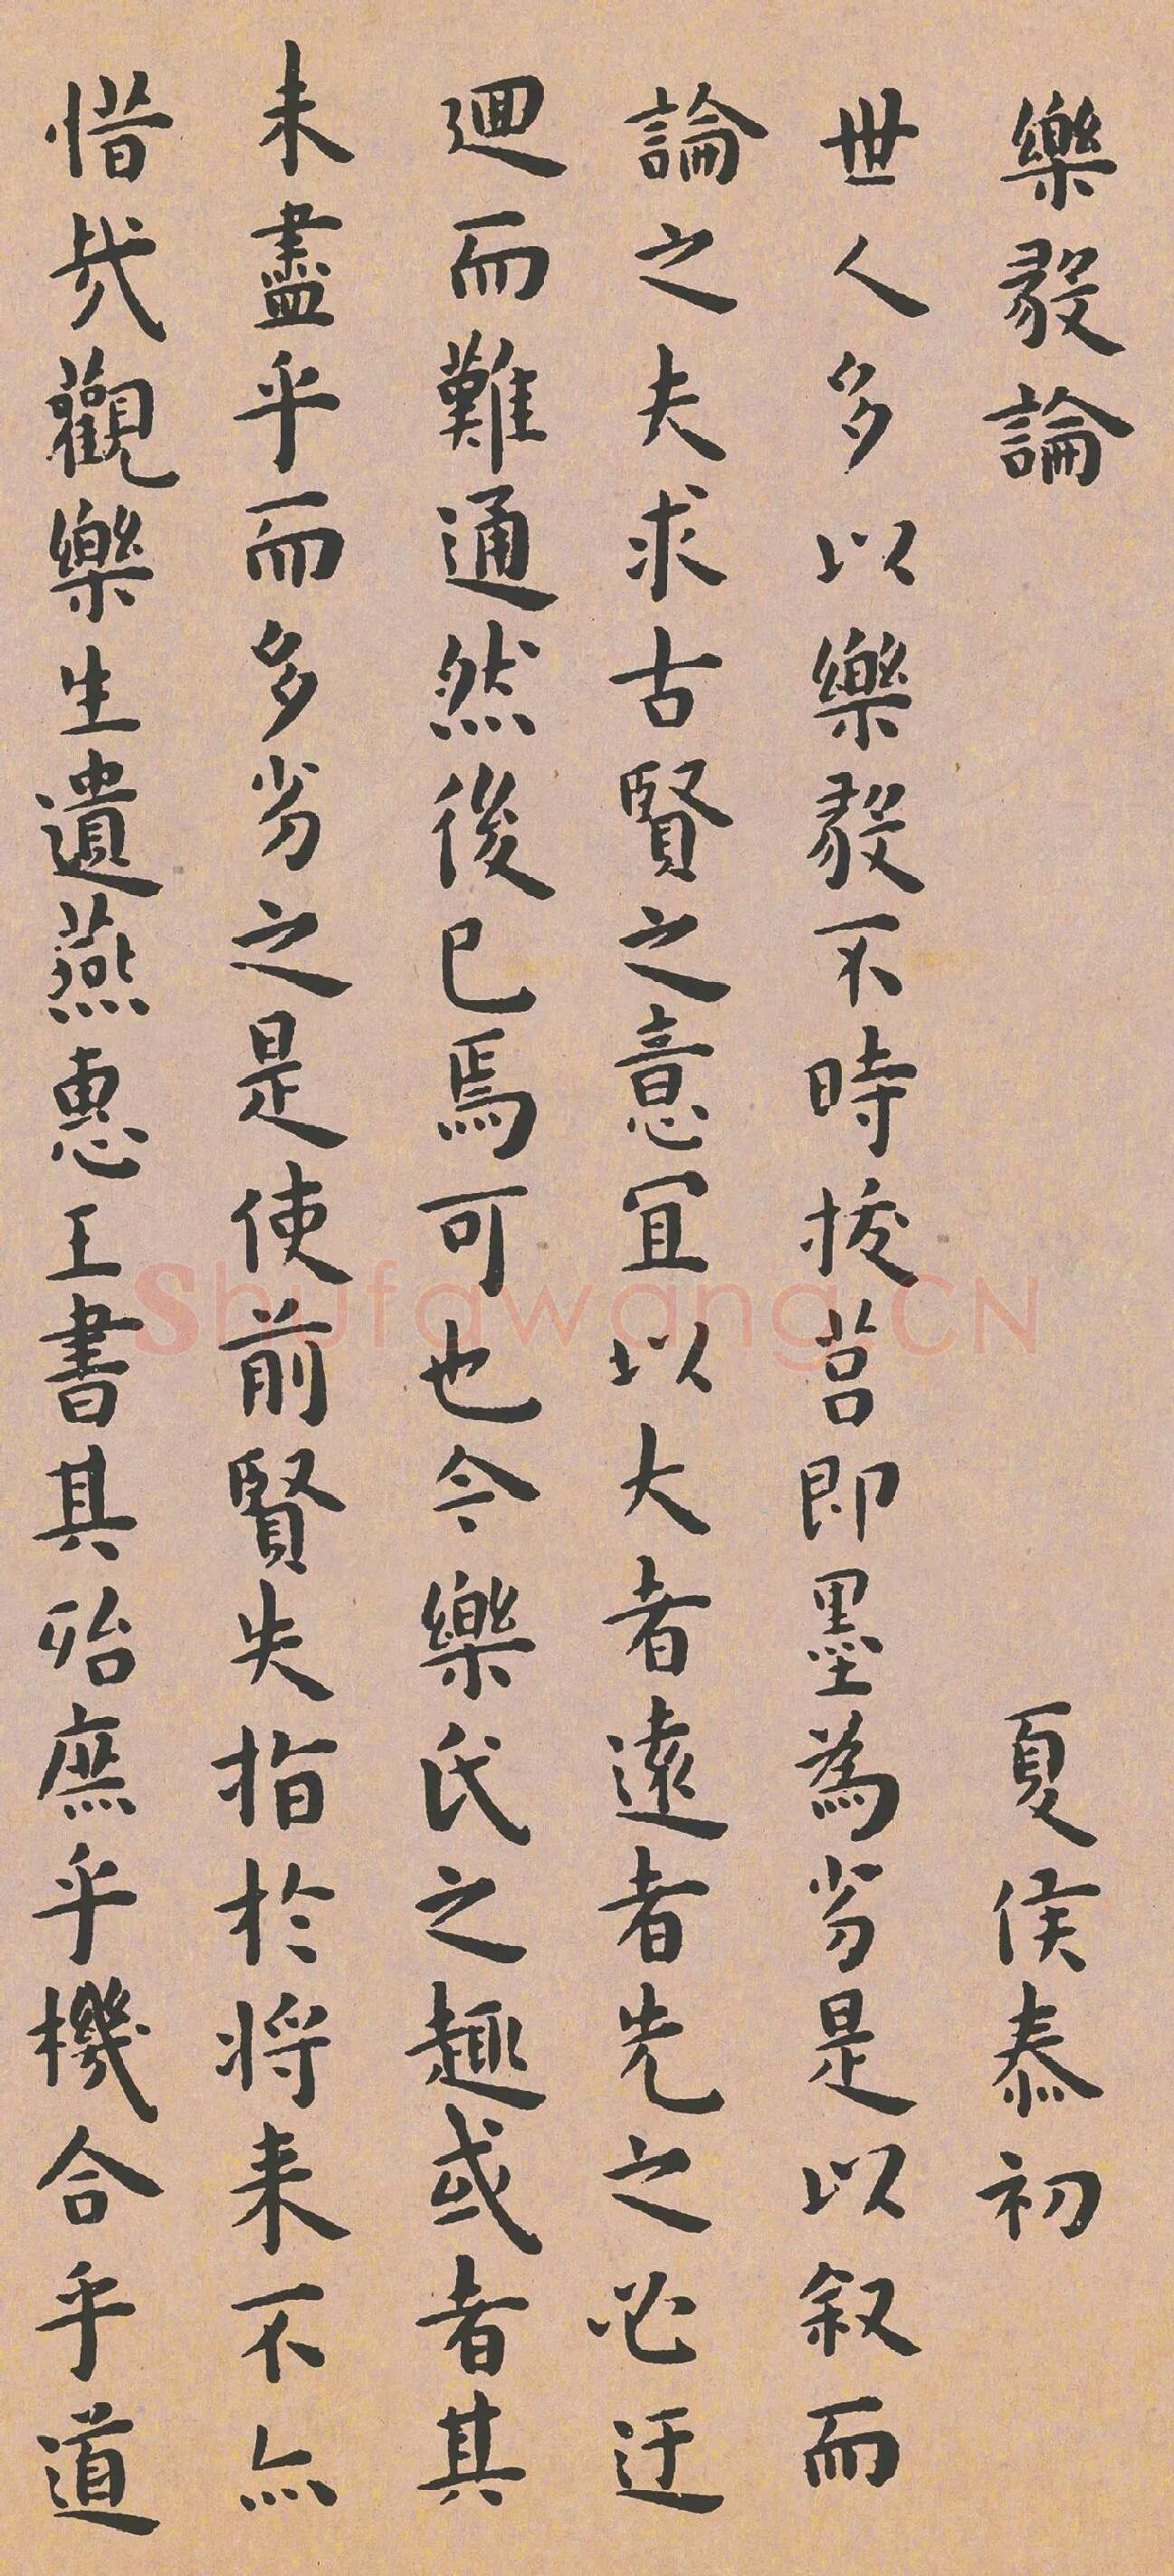 樂毅論 夏侯泰初
世人多以樂毅不時拔莒即墨為劣是以叙而
論之夫求古賢之意宜以大者遠者先之必迂
迴而難通然後已焉可也今樂氏之趣或者其
未盡乎而多劣之是使前賢失指於将来不亦
惜哉觀樂生遺燕惠王書其殆庶乎機合乎道
Shufawang.CN